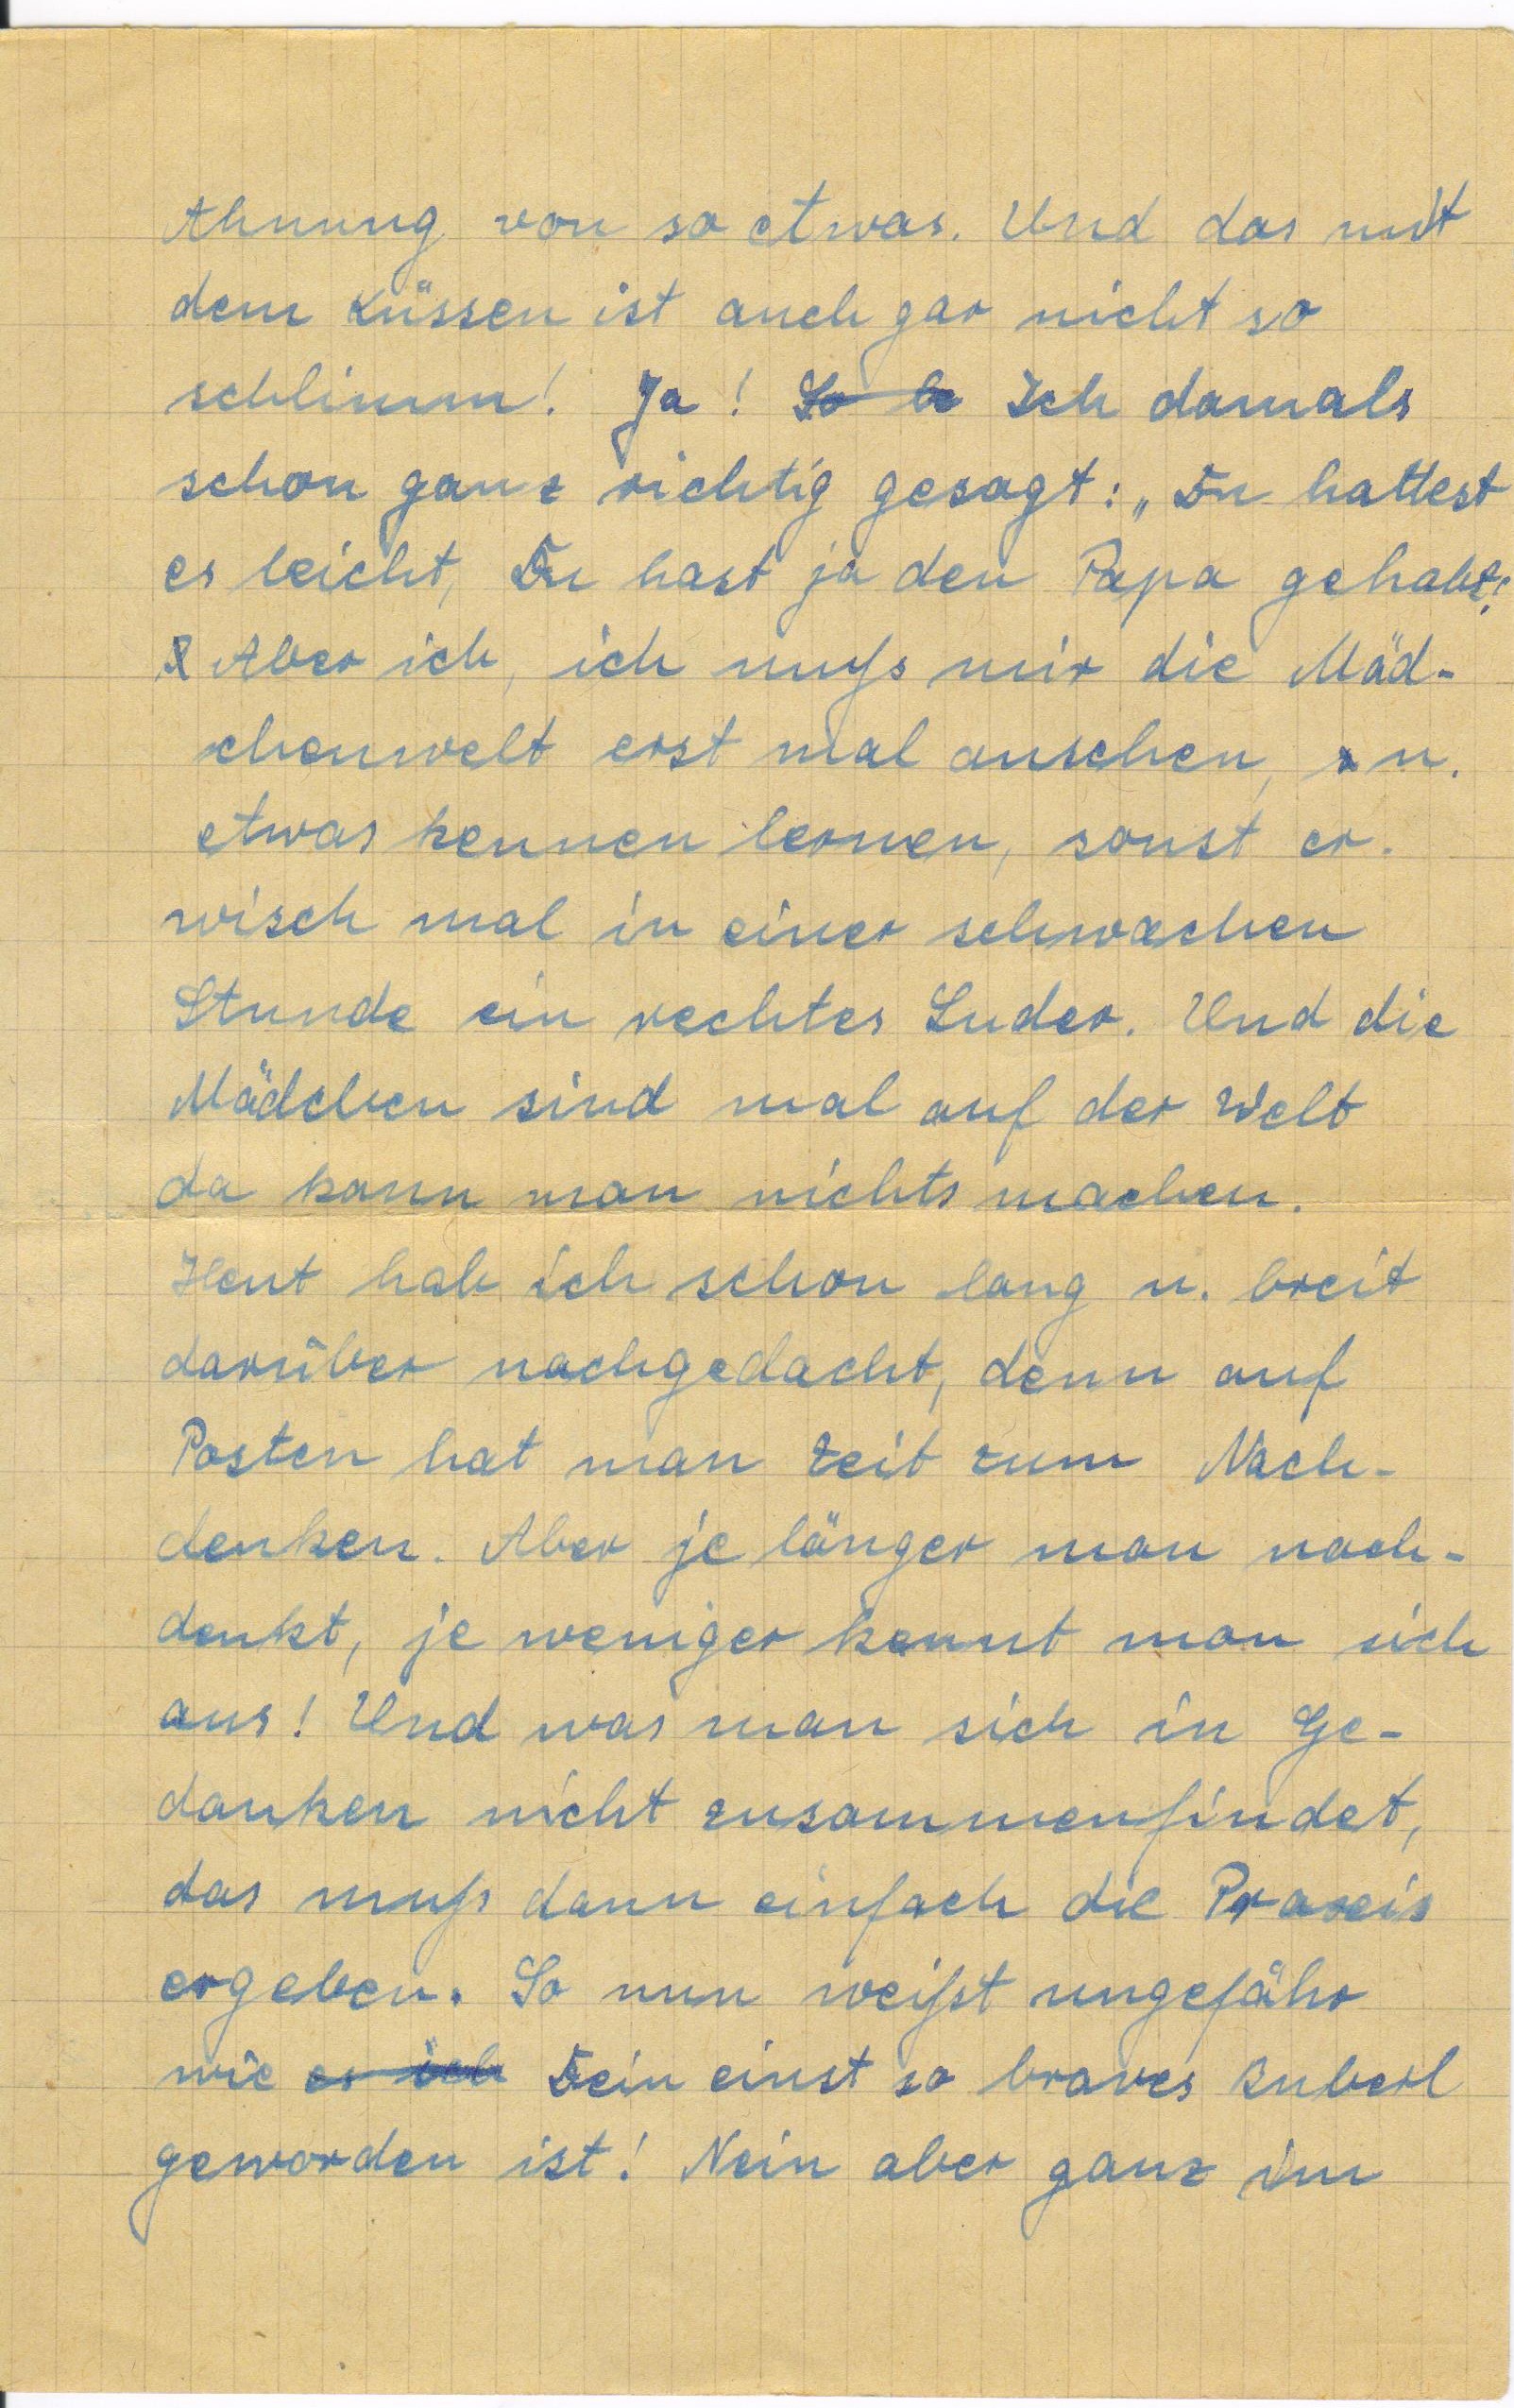 Ahnung von so etwas. Und das mit
dem Küssen ist auch gar nicht so
schlimm! Ja! So ha Ich damals
schon ganz richtig gesagt: „Du hattest
es leicht, Du hast ja den Papa gehabt!
Aber ich, ich muß mir die Mäd-
chenwelt erst mal ansehen, u.
etwas kennen lernen, sonst er-
wisch mal in einer schwachen
Stunde ein rechtes Luder. Und die
Mädchen sind mal auf der Welt
da kann man nichts machen.
Heut hab ich schon lang u. breit
darüber nachgedacht, denn auf
Posten hat man Zeit zum Nach-
denken. Aber je länger man nach-
denkt, je weniger kennt man sich
aus! Und was man sich in Ge-
danken nicht zusammenfindet,
das muß dann einfach die Praxis
ergeben. So nun weißt ungefähr
wie es ich Dein einst so braves Buberl
geworden ist! Nein aber ganz im